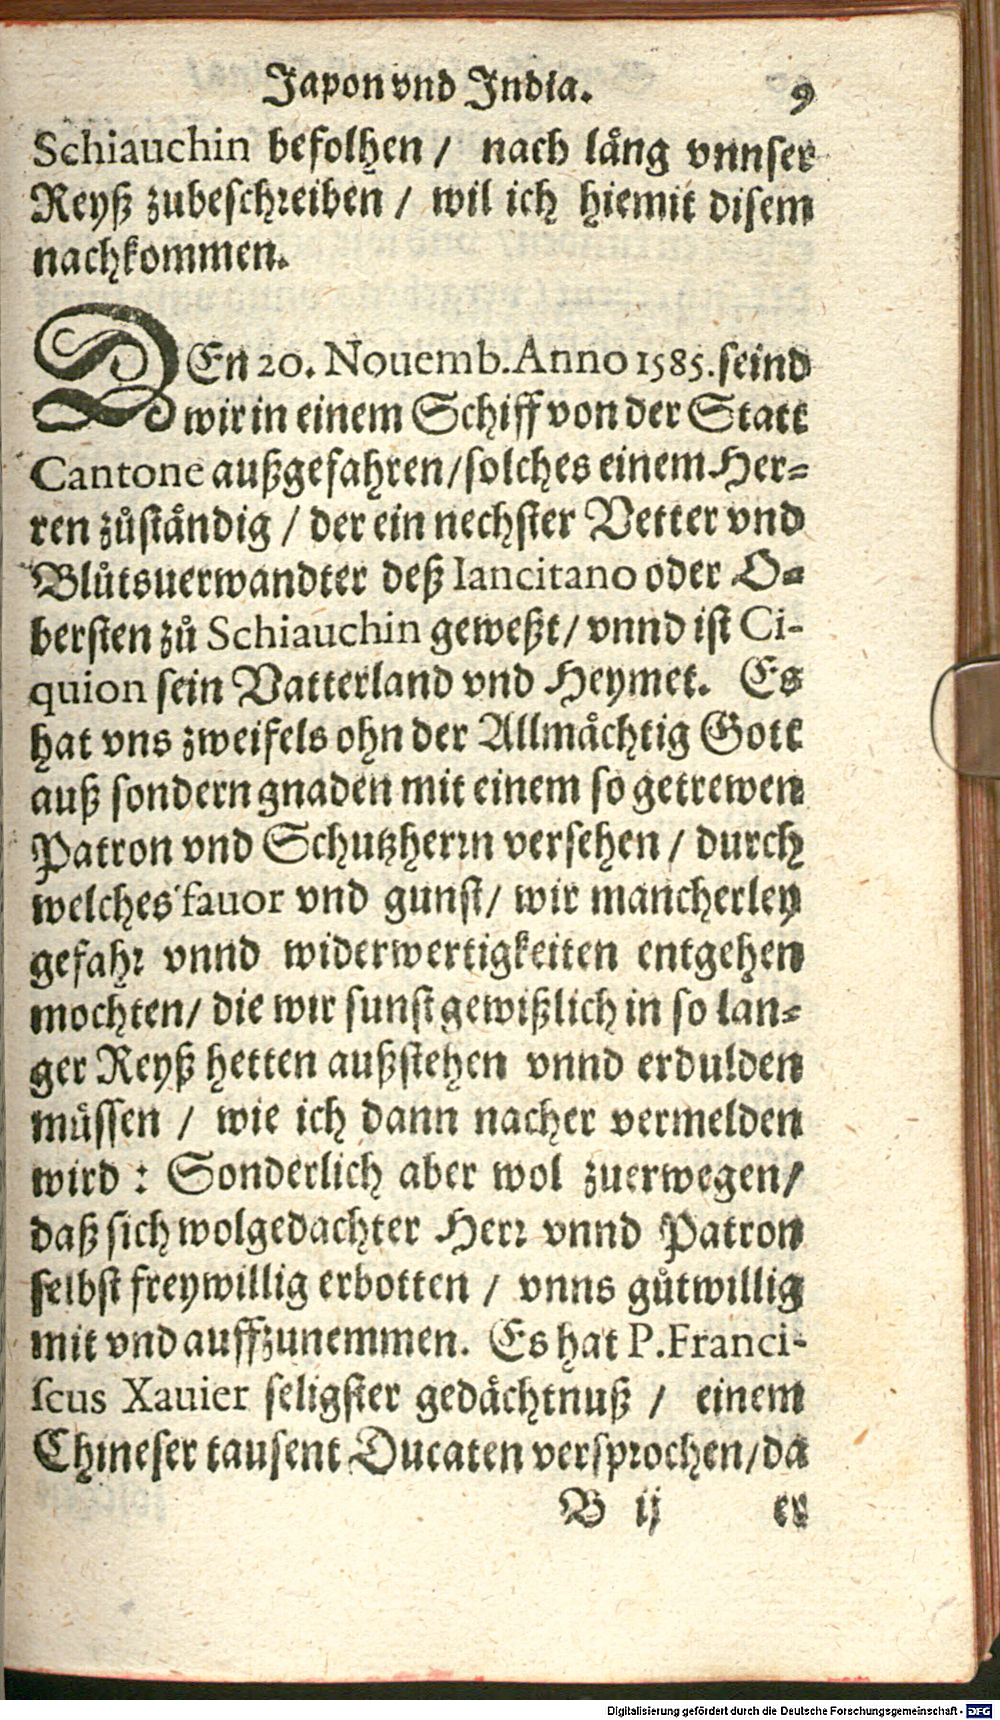 Japon vnd India. 9
Schiauchin befolhen / nach lång vnnser
Reyß zubeschreiben / wil ich hiemit disem
nachkommen.
DEn 20. Nouemb. Anno 1585. seind
wir in einem Schiff von der Statt
Cantone außgefahren / solches einem Her-
ren zůståndig / der ein nechster Vetter vnd
Blůtsuerwandter deß Iancitano oder O-
bersten zů Schiauchin geweßt / vnnd ist Ci-
quion sein Vatterland vnd Heymet. Es
hat vns zweifels ohn der Allmåchtig Gott
auß sondern gnaden mit einem so getrewen
Patron vnd Schutzherrn versehen / durch
welches fauor vnd gunst / wir mancherley
gefahr vnnd widerwertigkeiten entgehen
mochten / die wir sunst gewißlich in so lan-
ger Reyß hetten außstehen vnnd erdulden
müssen / wie ich dann nacher vermelden
wird : Sonderlich aber wol zuerwegen /
daß sich wolgedachter Herr vnnd Patron
selbst freywillig erbotten / vnns gůtwillig
mit vnd auffzunemmen. Es hat P. Franci-
scus Xauier seligster gedåchtnuß / einem
Chineser tausent Ducaten versprochen / da
B ij er
Digitalisierung gefördert durch die Deutsche Forschungsgemeinschaft - DFG